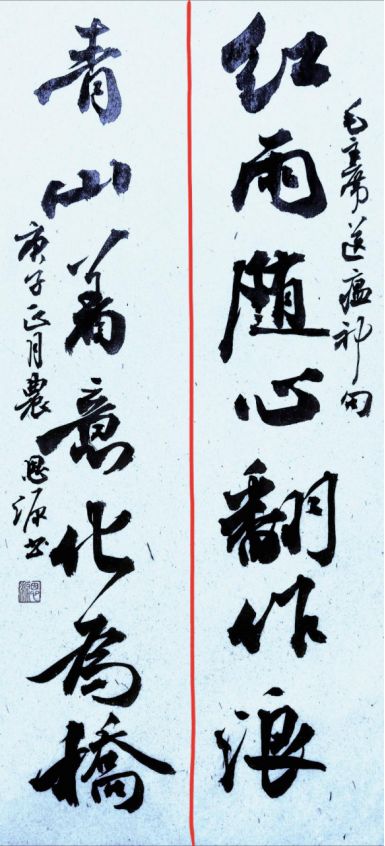 毛主席送瘟神句
红雨随心翻作浪
青山着意化為橋
庚子正月農 恩源书